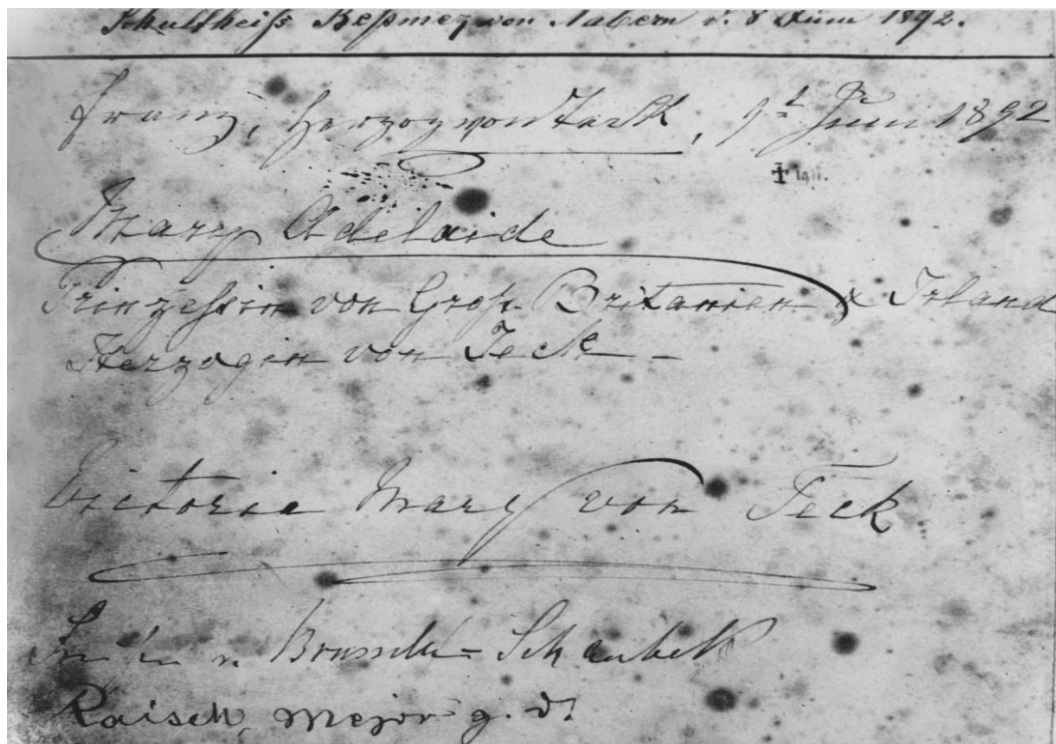 Schultheiß Beßmer von Nabern d. 8 Juni 1892.
Franz, Herzog von Teck, Juni 1892
Mary Adelaide
Prinzessin von Groß Britanien & Irland
Herzogin von Teck –
Victoria Mary von Teck
Schaubek
Raisch, Major